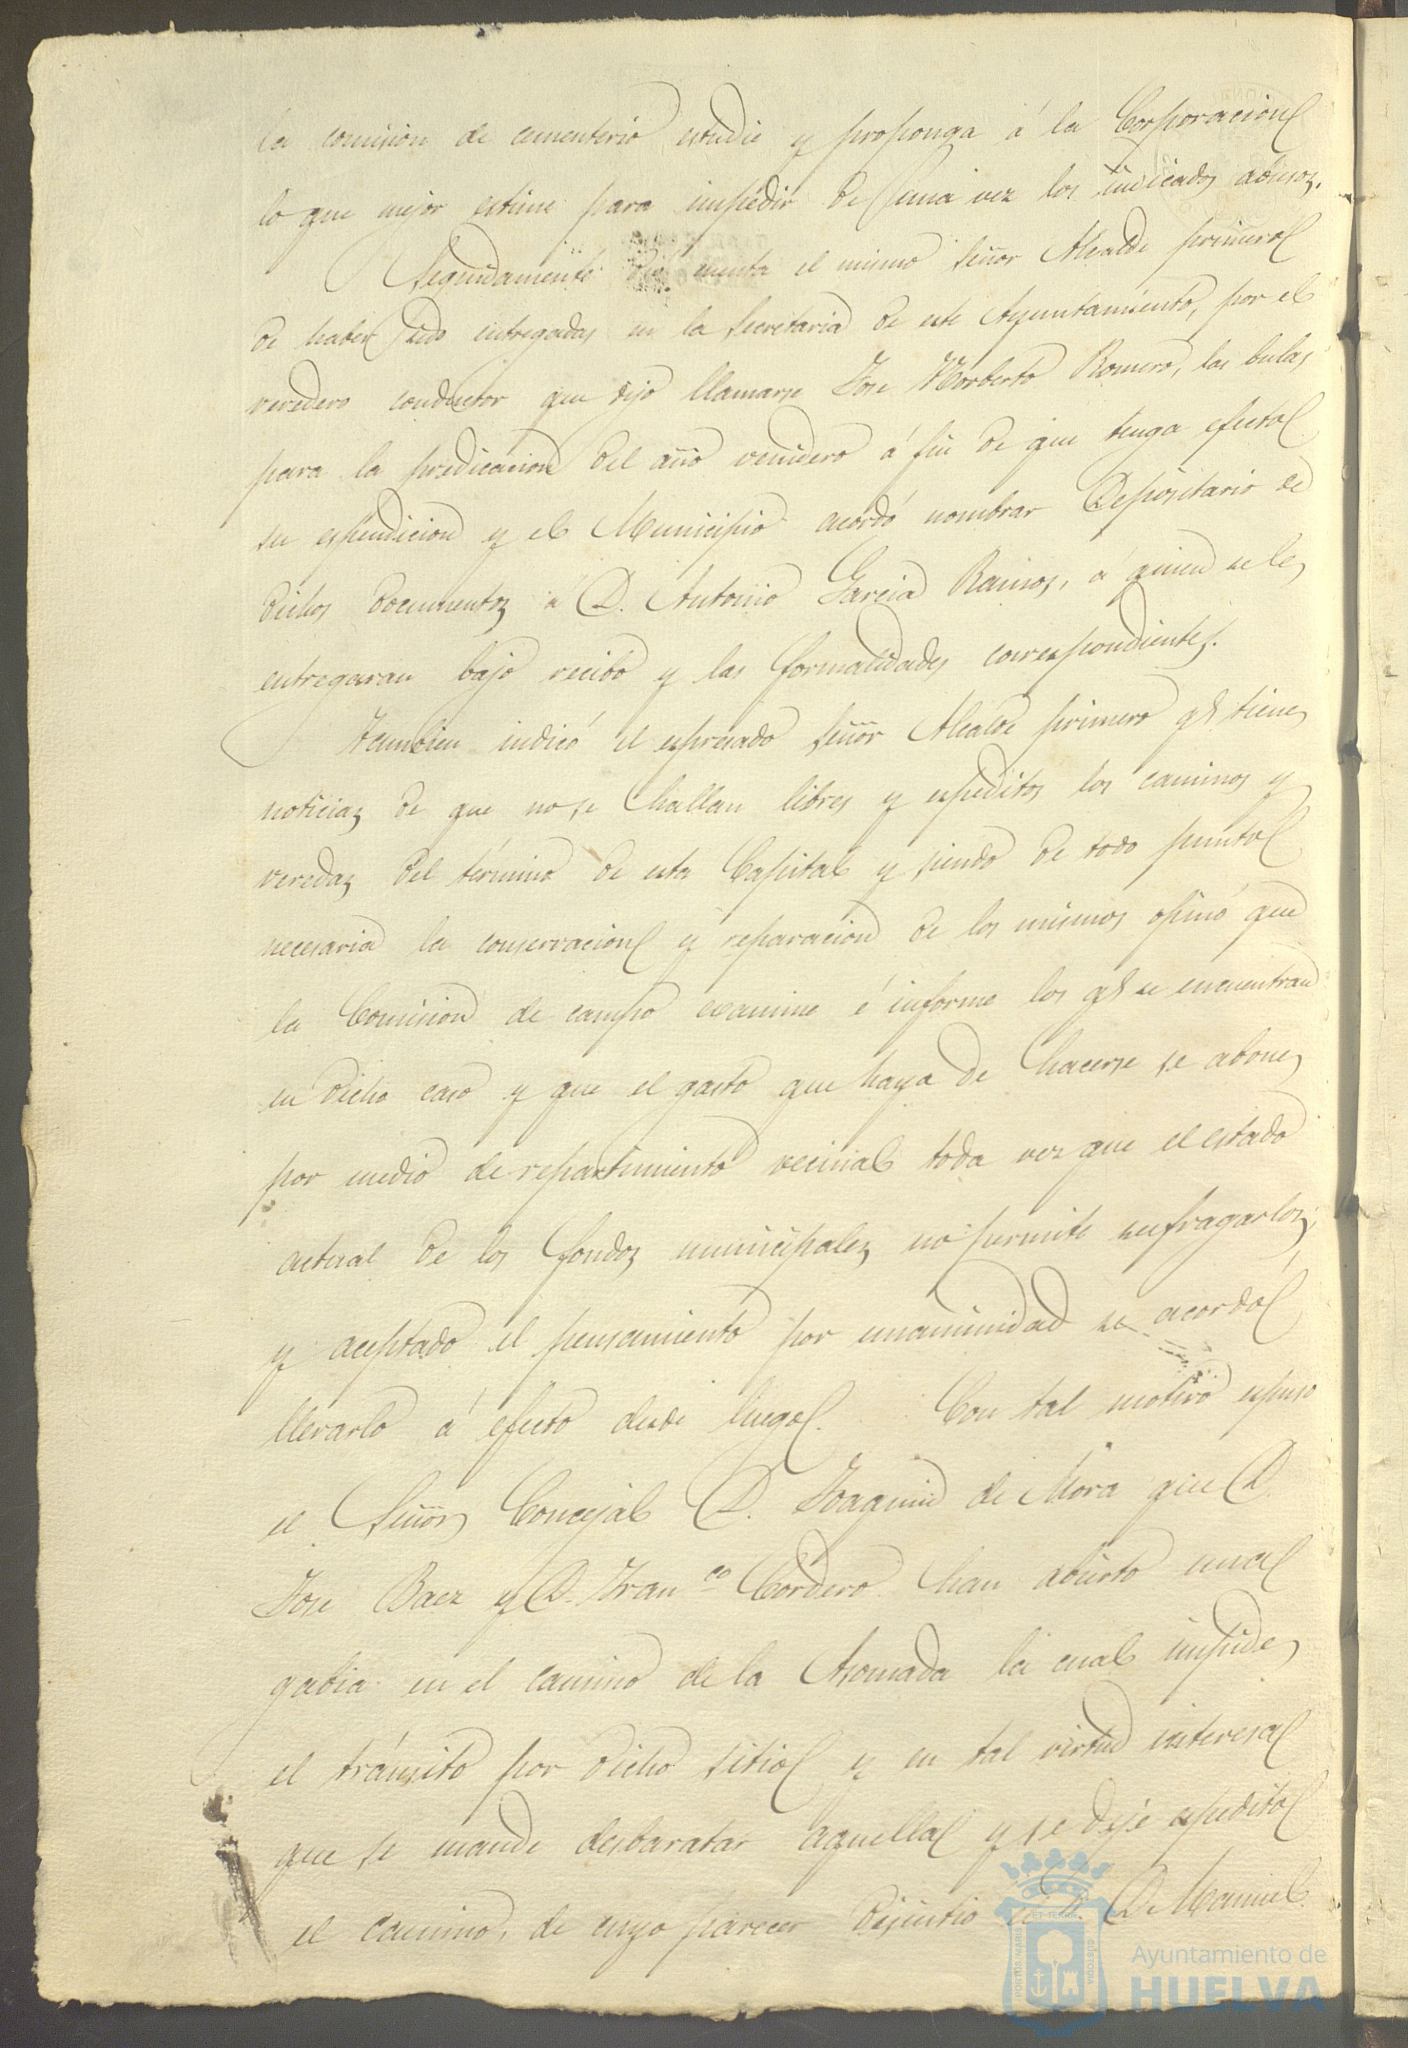 la comision de cementerio estudie y proponga á la Corporacion
lo que mejor estime para impedir de una vez los indicados abusos.
Seguidamente dió cuenta el mismo Señor Alcalde primero
de haber sido entregadas en la Secretaria de este Ayuntamiento, por el
veredero conductor que dijo llamarse Jose Norberto Romero, las bulas
para la predicacion del año venidero á fin de que tenga efecto
su espendicion y el Municipio acordó nombrar Depositario de
dichos documentos á D. Antonio Garcia Ramos, á quien se le
entregaran bajo recibo y las formalidades correspondientes.
Tambien indicó el espresado Señor Alcalde primero qe tiene
noticias de que no se hallan libres y espeditos los caminos y
veredas del término de esta Capital y siendo de todo punto
necesaria la conservacion y reparacion de los mismos opinó que
la Comision de campo examine é informe los qe se encuentran
en dicho caso y que el gasto que haya de hacerse se abone
por medio de repartimiento vecinal toda vez que el estado
actual de los fondos municipales no permite sufragarlos;
y aceptado el pensamiento por unanimidad se acordó
llevarlo á efecto desde luego. Con tal motivo espuso
el Señor Concejal D. Joaquin de Mora que D.
Jose Baez y D. Franco Cordero han abierto una
gabia en el camino de la Asomada la cual impide
el tránsito por dicho sitio y en tal virtud interesa
que se mande desbaratar aquella y se deje espedito
el camino, de cuyo parecer disintió el Sr. D. Manuel
Ayuntamiento de
HUELVA
PORTUS MARIS
ET TERRE
CUSTODIA